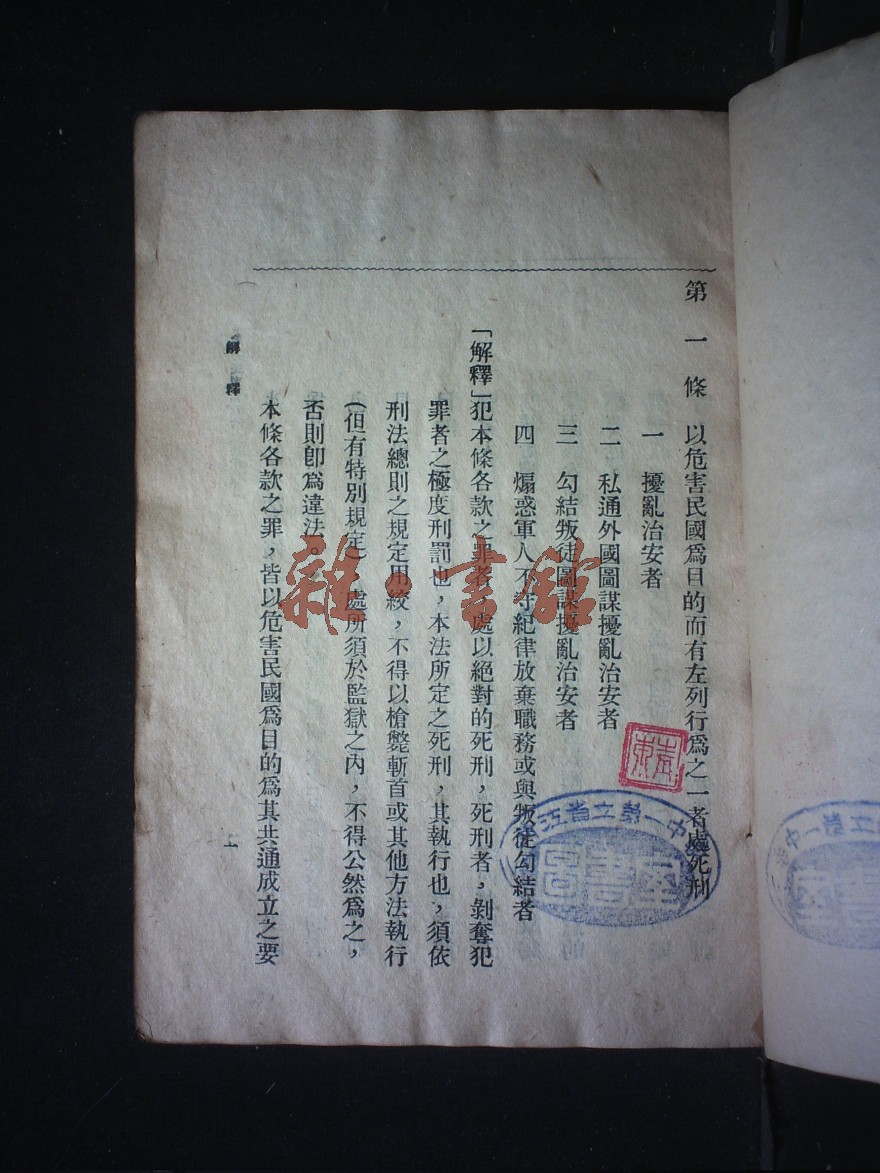 第一條　以危害民國爲目的而有左列行爲之一者處死刑
一　擾亂治安者
二　私通外國圖謀擾亂治安者
三　勾結叛徒圖謀擾亂治安者
四　煽惑軍人不守紀律放棄職務或與叛徒勾結者
「解釋」犯本條各款之罪者，處以絕對的死刑，死刑者，剝奪犯
罪者之極度刑罰也，本法所定之死刑，其執行也，須依
刑法總則之規定用絞，不得以槍斃斬首或其他方法執行
（但有特別規定），處所須於監獄之內，不得公然爲之，
否則卽爲違法。
本條各款之罪，皆以危害民國爲目的爲其共通成立之要
解釋
一
雜·書館
江省立第一中
圖書室